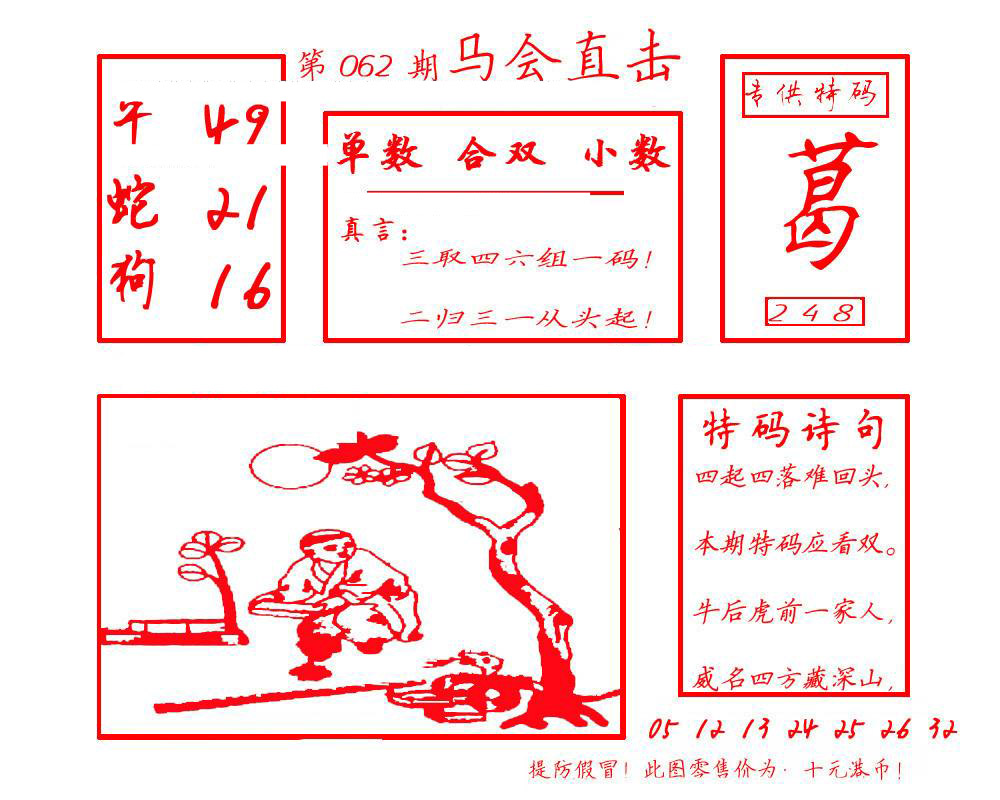 第 062 期 马会直击
午 49
蛇 21
狗 16
单数 合双 小数
真言：
三取四六组一码！
二归三一从头起！
专供特码
葛
2 4 8
特码诗句
四起四落难回头，
本期特码应看双。
牛后虎前一家人，
威名四方藏深山，
05 12 13 24 25 26 32
提防假冒！此图零售价为·十元港币！